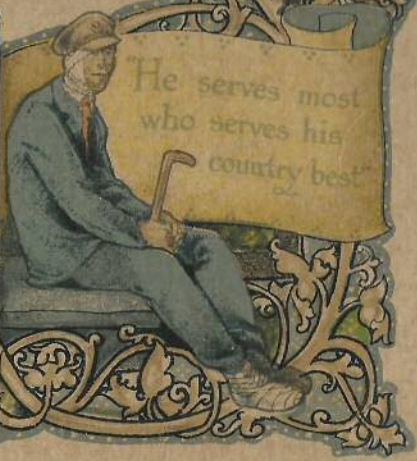 "He serves most
who serves his
country best"